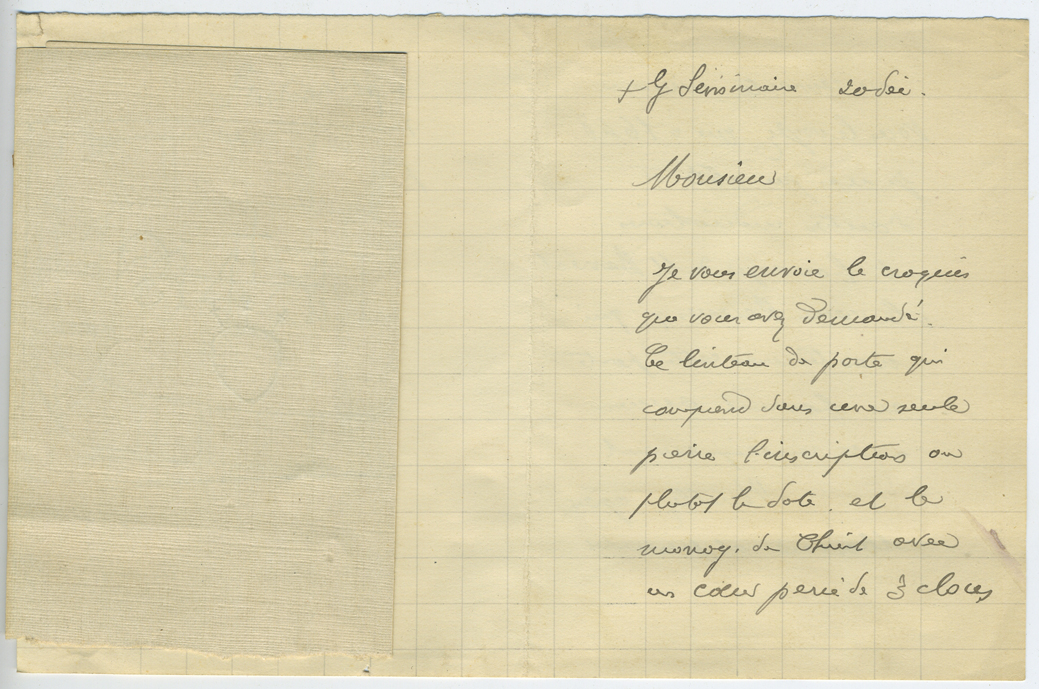 + G Séminaire 20 déc.
Monsieur
Je vous envoie le croquis
que vous avez demandé.
Ce linteau de porte qui
comprend dans une seule
pierre l'inscription ou
plutot la date et le
monog. du Christ avec
un cœur percé de 3 clous